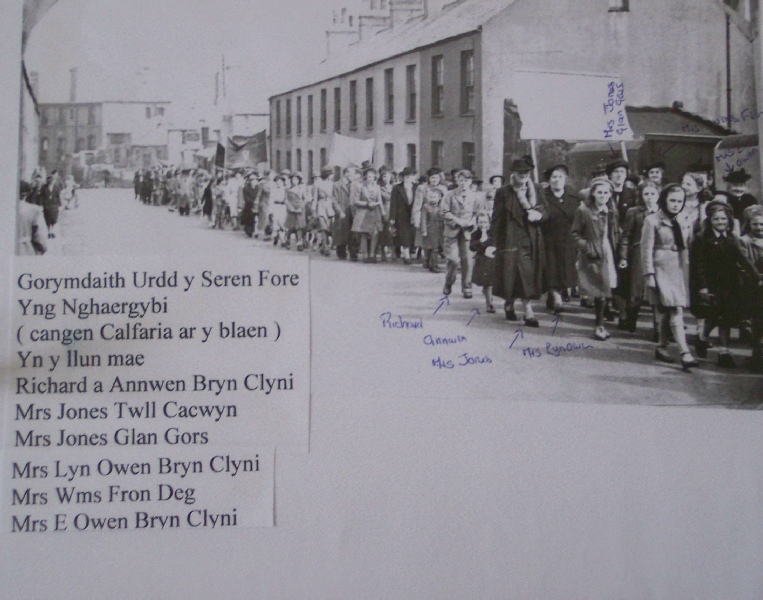 Mrs Jones
Glan Gors
Richard
Annwen
Mrs Jones
Mrs Lyn Owen
Gorymdaith Urdd y Seren Fore
Yng Nghaergybi
( cangen Calfaria ar y blaen )
Yn y llun mae
Richard a Annwen Bryn Clyni
Mrs Jones Twll Cacwyn
Mrs Jones Glan Gors
Mrs Lyn Owen Bryn Clyni
Mrs Wms Fron Deg
Mrs E Owen Bryn Clyni